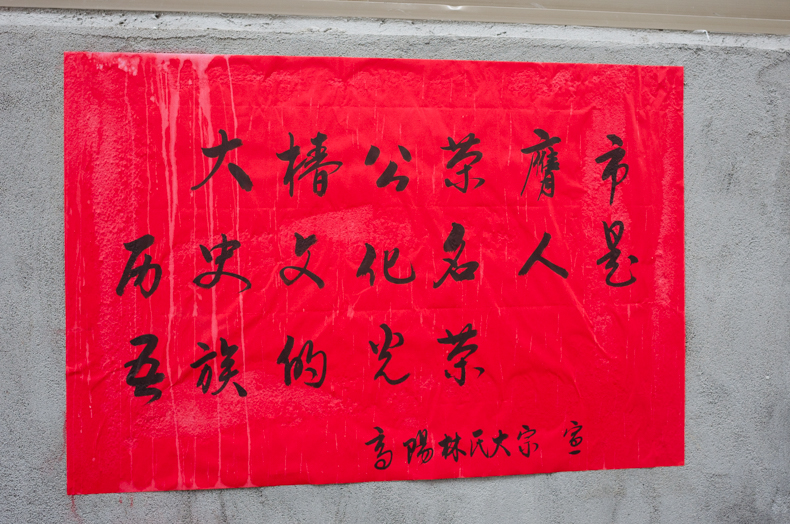 大椿公荣膺市
历史文化名人是
吾族的光荣
高阳林氏大宗 宣